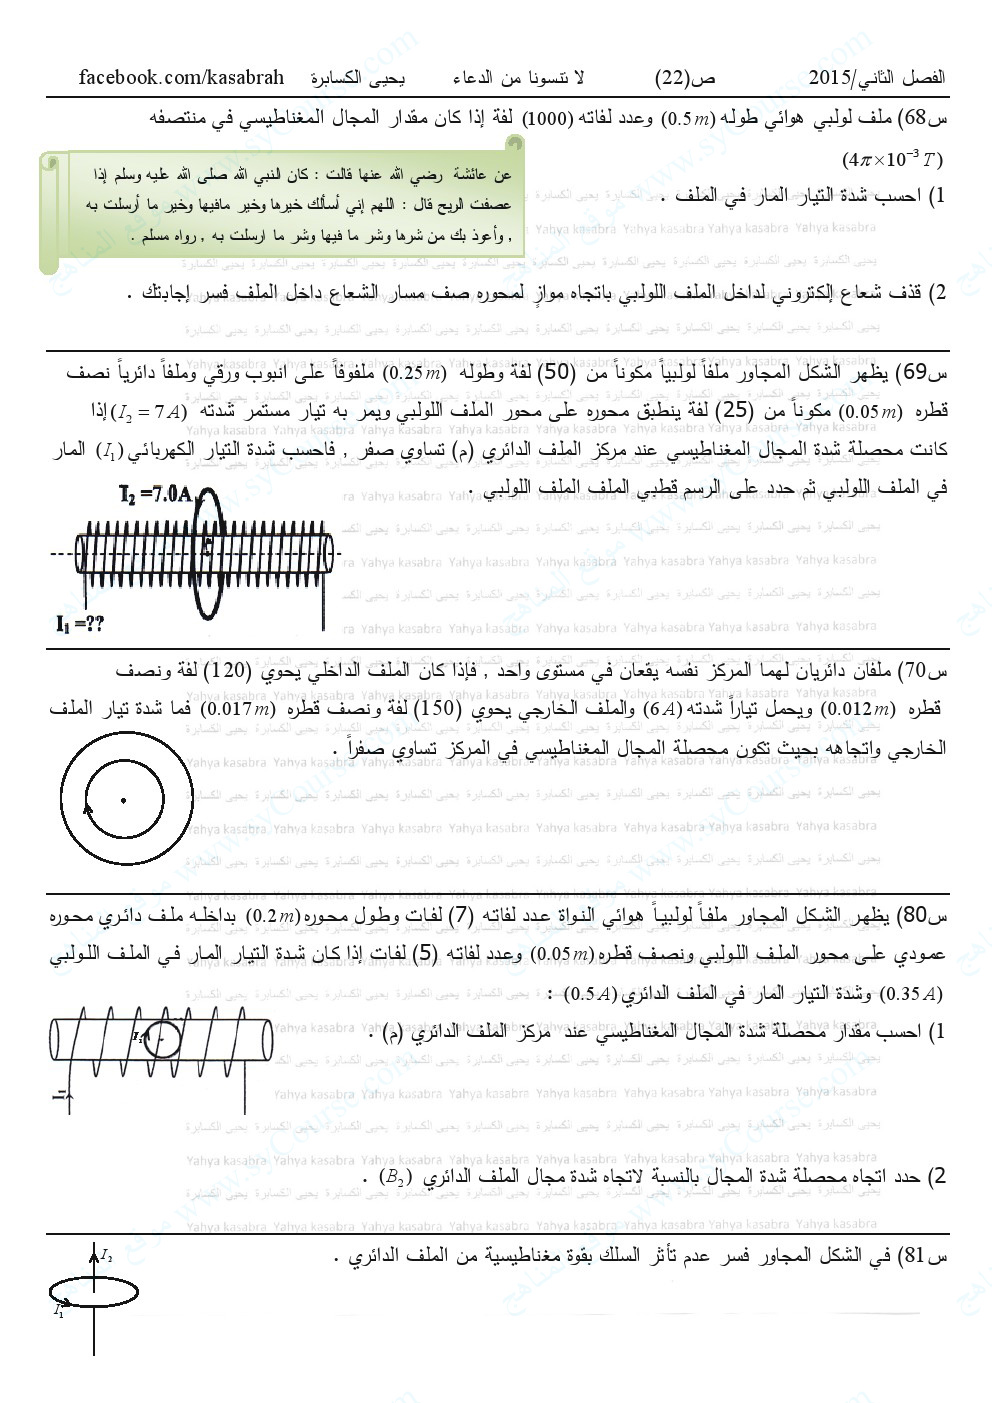 الفصل الثاني/2015 ص(22) لا تنسونا من الدعاء يحيى الكسابرة facebook.com/kasabrah
س68) ملف لولبي هوائي طوله (0.5 m) وعدد لفاته (1000) لفة إذا كان مقدار المجال المغناطيسي في منتصفه
(4π×10⁻³ T)
1) احسب شدة التيار المار في الملف .
عن عائشة رضي الله عنها قالت : كان النبي الله صلى الله عليه وسلم إذا
عصفت الريح قال : اللهم إني أسألك خيرها وخير مافيها وخير ما أرسلت به
, وأعوذ بك من شرها وشر ما فيها وشر ما ارسلت به , رواه مسلم .
2) قذف شعاع إلكتروني لداخل الملف اللولبي باتجاه موازٍ لمحوره صف مسار الشعاع داخل الملف فسر إجابتك .
س69) يظهر الشكل المجاور ملفاً لولبياً مكوناً من (50) لفة وطوله (0.25 m) ملفوفاً على انبوب ورقي وملفاً دائرياً نصف
قطره (0.05 m) مكوناً من (25) لفة ينطبق محوره على محور الملف اللولبي ويمر به تيار مستمر شدته (I₂ = 7 A) إذا
كانت محصلة شدة المجال المغناطيسي عند مركز الملف الدائري (م) تساوي صفر , فاحسب شدة التيار الكهربائي (I₁) المار
في الملف اللولبي ثم حدد على الرسم قطبي الملف الملف اللولبي .
I₂ =7.0A
I₁ =??
س70) ملفان دائريان لهما المركز نفسه يقعان في مستوى واحد , فإذا كان الملف الداخلي يحوي (120) لفة ونصف
قطره (0.012 m) ويحمل تياراً شدته (6 A) والملف الخارجي يحوي (150) لفة ونصف قطره (0.017 m) فما شدة تيار الملف
الخارجي واتجاهه بحيث تكون محصلة المجال المغناطيسي في المركز تساوي صفراً .
س80) يظهر الشكل المجاور ملفاً لولبياً هوائي النواة عدد لفاته (7) لفات وطول محوره (0.2 m) بداخله ملف دائري محوره
عمودي على محور الملف اللولبي ونصف قطره (0.05 m) وعدد لفاته (5) لفات إذا كان شدة التيار المار في الملف اللولبي
(0.35 A) وشدة التيار المار في الملف الدائري (0.5 A) :
1) احسب مقدار محصلة شدة المجال المغناطيسي عند مركز الملف الدائري (م) .
2) حدد اتجاه محصلة شدة المجال بالنسبة لاتجاه شدة مجال الملف الدائري (B₂) .
س81) في الشكل المجاور فسر عدم تأثر السلك بقوة مغناطيسية من الملف الدائري .
I₂
I₁